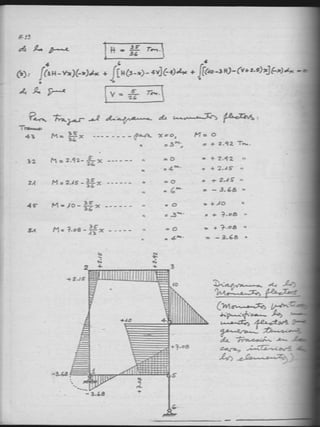 de la que H = 35/36 Ton.
(b): ∫(3H-Vx)(-x)dx + ∫[H(3-x)-4V](-4)dx + ∫[(10-3H)-(V+2.5)x](-x)dx =
de la que V = 5/26 Ton.
Para trazar el diagrama de momentos flectores.
Tramo
43 M = 35/36 x ------- para x=0, M=0
" =3m, = +2.92 Tm.
32 M = 2.92 - x ------ " =0 " +2.92 "
" =4m. " +2.15 "
21 M = 2.15 - 35/36 x ------ " =0 " +2.15 "
" =6m " -3.68 "
45 M = 10 - 35/36 x ------ " =0 " +10 "
" =3m. " +7.08 "
M = 7.08 - x ----- " =0 " +7.08 "
" =4m. " -3.68 "
2 +2.15 +2.92 3
+2.15
10
10 4
+7.08
-3.68
+7.08 5
-3.68
6
Diagrama de los
Momentos flectores
(Momentos
significan los
mentos flectores que
generan tensiones
de tracción en las
caras interiores de
los elementos)